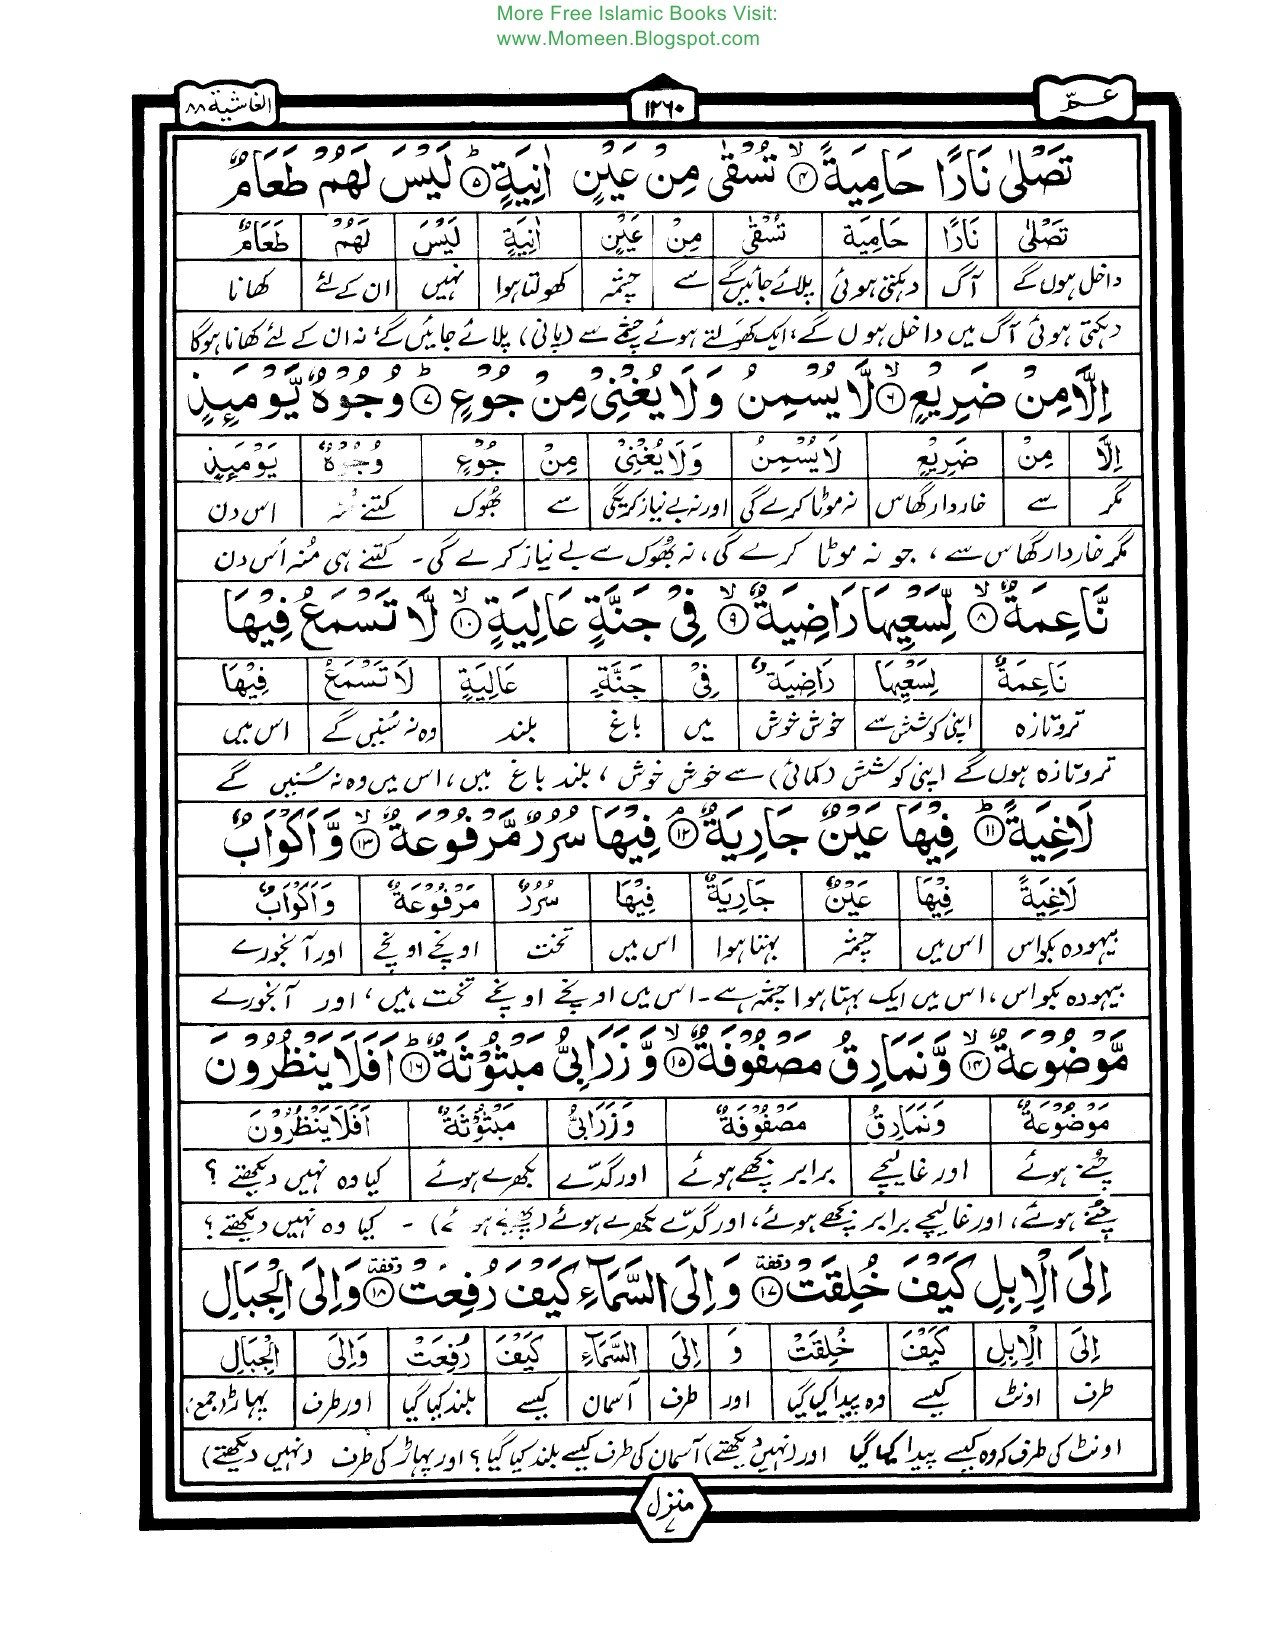 More Free Islamic Books Visit:
www.Momeen.Blogspot.com
عـمّ ١٢٦٠ الغاشية ٨٨
تَصْلٰى نَارًا حَامِيَةً ۙ﴿۴﴾ تُسْقٰى مِنْ عَيْنٍ اٰنِيَةٍ ؕ﴿۵﴾ لَيْسَ لَهُمْ طَعَامٌ
تَصْلٰى نَارًا حَامِيَةً تُسْقٰى مِنْ عَيْنٍ اٰنِيَةٍ لَيْسَ لَهُمْ طَعَامٌ
داخل ہوں گے آگ دہکتی ہوئی پلائے جائیں گے سے چشمہ کھولتا ہوا نہیں ان کے لئے کھانا
دہکتی ہوئی آگ میں داخل ہوں گے، ایک کھولتے ہوئے چشمے سے (پانی) پلائے جائیں گے، نہ ان کے لئے کھانا ہوگا
اِلَّا مِنْ ضَرِيْعٍ ۙ﴿۶﴾ لَّا يُسْمِنُ وَلَا يُغْنِيْ مِنْ جُوْعٍ ؕ﴿۷﴾ وُجُوْهٌ يَّوْمَئِذٍ
اِلَّا مِنْ ضَرِيْعٍ لَا يُسْمِنُ وَلَا يُغْنِيْ مِنْ جُوْعٍ وُجُوْهٌ يَوْمَئِذٍ
مگر سے خاردار گھاس نہ موٹا کرے گی اور نہ بے نیاز کریگی سے بھوک کتنے اس دن
مگر خاردار گھاس سے، جو نہ موٹا کرے گی، نہ بھوک سے بے نیاز کرے گی۔ کتنے ہی مُنہ اُس دن
نَّاعِمَةٌ ۙ﴿۸﴾ لِّسَعْيِهَا رَاضِيَةٌ ۙ﴿۹﴾ فِيْ جَنَّةٍ عَالِيَةٍ ۙ﴿۱۰﴾ لَّا تَسْمَعُ فِيْهَا
نَاعِمَةٌ لِسَعْيِهَا رَاضِيَةٌ فِيْ جَنَّةٍ عَالِيَةٍ لَا تَسْمَعُ فِيْهَا
تروتازہ اپنی کوشش سے خوش خوش میں باغ بلند وہ نہ سُنیں گے اس میں
تروتازہ ہوں گے (اپنی کوشش (کمائی) سے خوش خوش، بلند باغ میں، اس میں وہ نہ سُنیں گے
لَاغِيَةً ؕ﴿۱۱﴾ فِيْهَا عَيْنٌ جَارِيَةٌ ۘ﴿۱۲﴾ فِيْهَا سُرُرٌ مَّرْفُوْعَةٌ ۙ﴿۱۳﴾ وَّاَكْوَابٌ
لَاغِيَةً فِيْهَا عَيْنٌ جَارِيَةٌ فِيْهَا سُرُرٌ مَرْفُوْعَةٌ وَاَكْوَابٌ
بیہودہ بکواس اس میں چشمہ بہتا ہوا اس میں تخت اونچے اونچے اور آبخورے
بیہودہ بکواس، اس میں ایک بہتا ہوا چشمہ ہے۔ اس میں اونچے اونچے تخت ہیں، اور آبخورے
مَّوْضُوْعَةٌ ۙ﴿۱۴﴾ وَّنَمَارِقُ مَصْفُوْفَةٌ ۙ﴿۱۵﴾ وَّزَرَابِيُّ مَبْثُوْثَةٌ ؕ﴿۱۶﴾ اَفَلَا يَنْظُرُوْنَ
مَوْضُوْعَةٌ وَنَمَارِقُ مَصْفُوْفَةٌ وَزَرَابِيُّ مَبْثُوْثَةٌ اَفَلَا يَنْظُرُوْنَ
چُنے ہوئے اور غالیچے برابر بچھے ہوئے اور گدّے بکھرے ہوئے کیا وہ نہیں دیکھتے؟
چُنے ہوئے، اور غالیچے برابر بچھے ہوئے، اور گدّے بکھرے ہوئے ۔ کیا وہ نہیں دیکھتے؟
اِلَى الْاِبِلِ كَيْفَ خُلِقَتْ ﴿۱۷﴾ وقفة وَاِلَى السَّمَآءِ كَيْفَ رُفِعَتْ ﴿۱۸﴾ وقفة وَاِلَى الْجِبَالِ
اِلَى الْاِبِلِ كَيْفَ خُلِقَتْ وَ اِلَى السَّمَآءِ كَيْفَ رُفِعَتْ وَاِلَى الْجِبَالِ
طرف اونٹ کیسے وہ پیدا کیا گیا اور طرف آسمان کیسے بلند کیا گیا اور طرف پہاڑ (جمع)
اونٹ کی طرف کہ وہ کیسے پیدا کیا گیا اور (نہیں دیکھتے) آسمان کی طرف کیسے بلند کیا گیا؟ اور پہاڑ کی طرف (نہیں دیکھتے)
منزل ٧